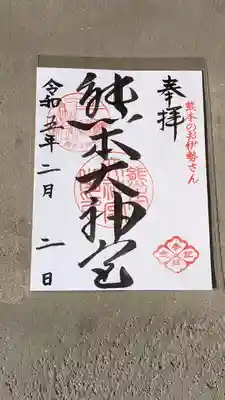 奉拝
熊本のお伊勢さん
熊本大神宮
令和五年二月二日